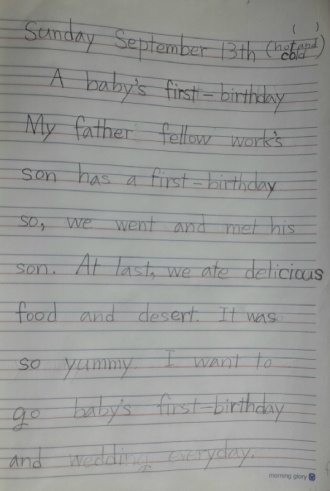 Sunday September 13th (hot and cold)
A baby's first-birthday
My father fellow work's
son has a first-birthday
so, we went and met his
son. At last, we ate delicious
food and desert. It was
so yummy. I want to
go baby's first-birthday
and wedding everyday.
morning glory